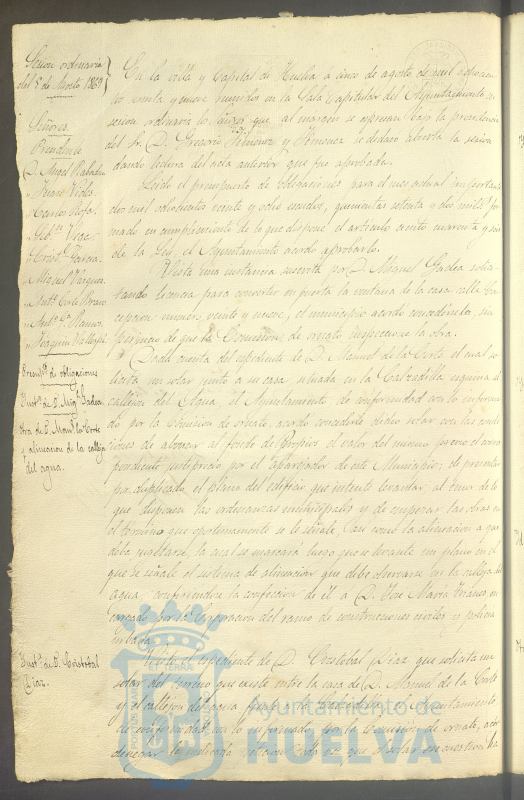 Sesion ordinaria
del 5 de Agosto 1869
Señores
Presidente
D. Miguel Rabadan
Juan
Marcos Rofa
Crist. García
Miguel Vazquez
Ant.º Corte Bravo
Ant.º G.ª Ramos
Joaquin Vallespi
En la villa y Capital de Huelva a cinco de agosto de mil ochocien
tos sesenta y nueve reunidos en la Sala Capitular del Ayuntamiento en
sesion ordinaria los Sres. que al margen se espresan bajo la presidencia
del Sr. D. Gregorio Jimenez y se declaró abierta la sesion
dando lectura del acta anterior que fue aprobada.
Leido el presupuesto de obligaciones para el mes actual importante
dos mil ochocientos veinte y ocho escudos, quinientas setenta y dos mil.s for
mado en cumplimiento de lo que dispone el artículo ciento cuarenta y
de la Ley, el Ayuntamiento acordó aprobarlo.
Presup.to de obligaciones
Vista una instancia suscrita por D. Miguel Gadea solici
tando licencia para convertir en puerta la ventana de la casa calle Con
cepcion numero veinte y nueve, el municipio acordó concedérsela, sin
perjuicio de que la Comision de ornato inspeccione la obra.
Inst.ª de D. Mig.l Gadea
Dada cuenta del espediente de D. Manuel de la Corte el cual so
licita un solar junto a su casa situada en la Calzadilla esquina al
callejon del Agua, el Ayuntamiento de conformidad con lo informa
do por la Comision de ornato, acordó concederle dicho solar con las condi
ciones de abonar al fondo de Propios el valor del mismo previo el corres
pondiente justiprecio por el aparejador de este Municipio; de presentar
por duplicado el plano del edificio que intente levantar al tenor de lo
que disponen las ordenanzas municipales y de empezar las obras en
el término que oportunamente se le señale, asi como la alineacion a que
deba sujetarse, la cual se marcará luego que se levante un plano en el
que se señale el sistema de alineacion que debe observarse en la calleja del
agua, confiriendose la confeccion de él a D. José María Franco, en
cargado por la Corporacion del ramo de construcciones civiles y policia
urbana.
Otra de D. Man.l la Corte
y alineacion de la calleja
del agua.
Visto el espediente de D. Cristobal Diaz que solicita un
solar del terreno que existe entre la casa de D. Manuel de la Corte
y el callejon del agua para el Ayuntamiento
de conformidad con lo informado por la Comision de ornato, acordó
denegar la indicada
Inst.ª de D. Cristobal
Diaz.
Ayuntamiento de
HUELVA